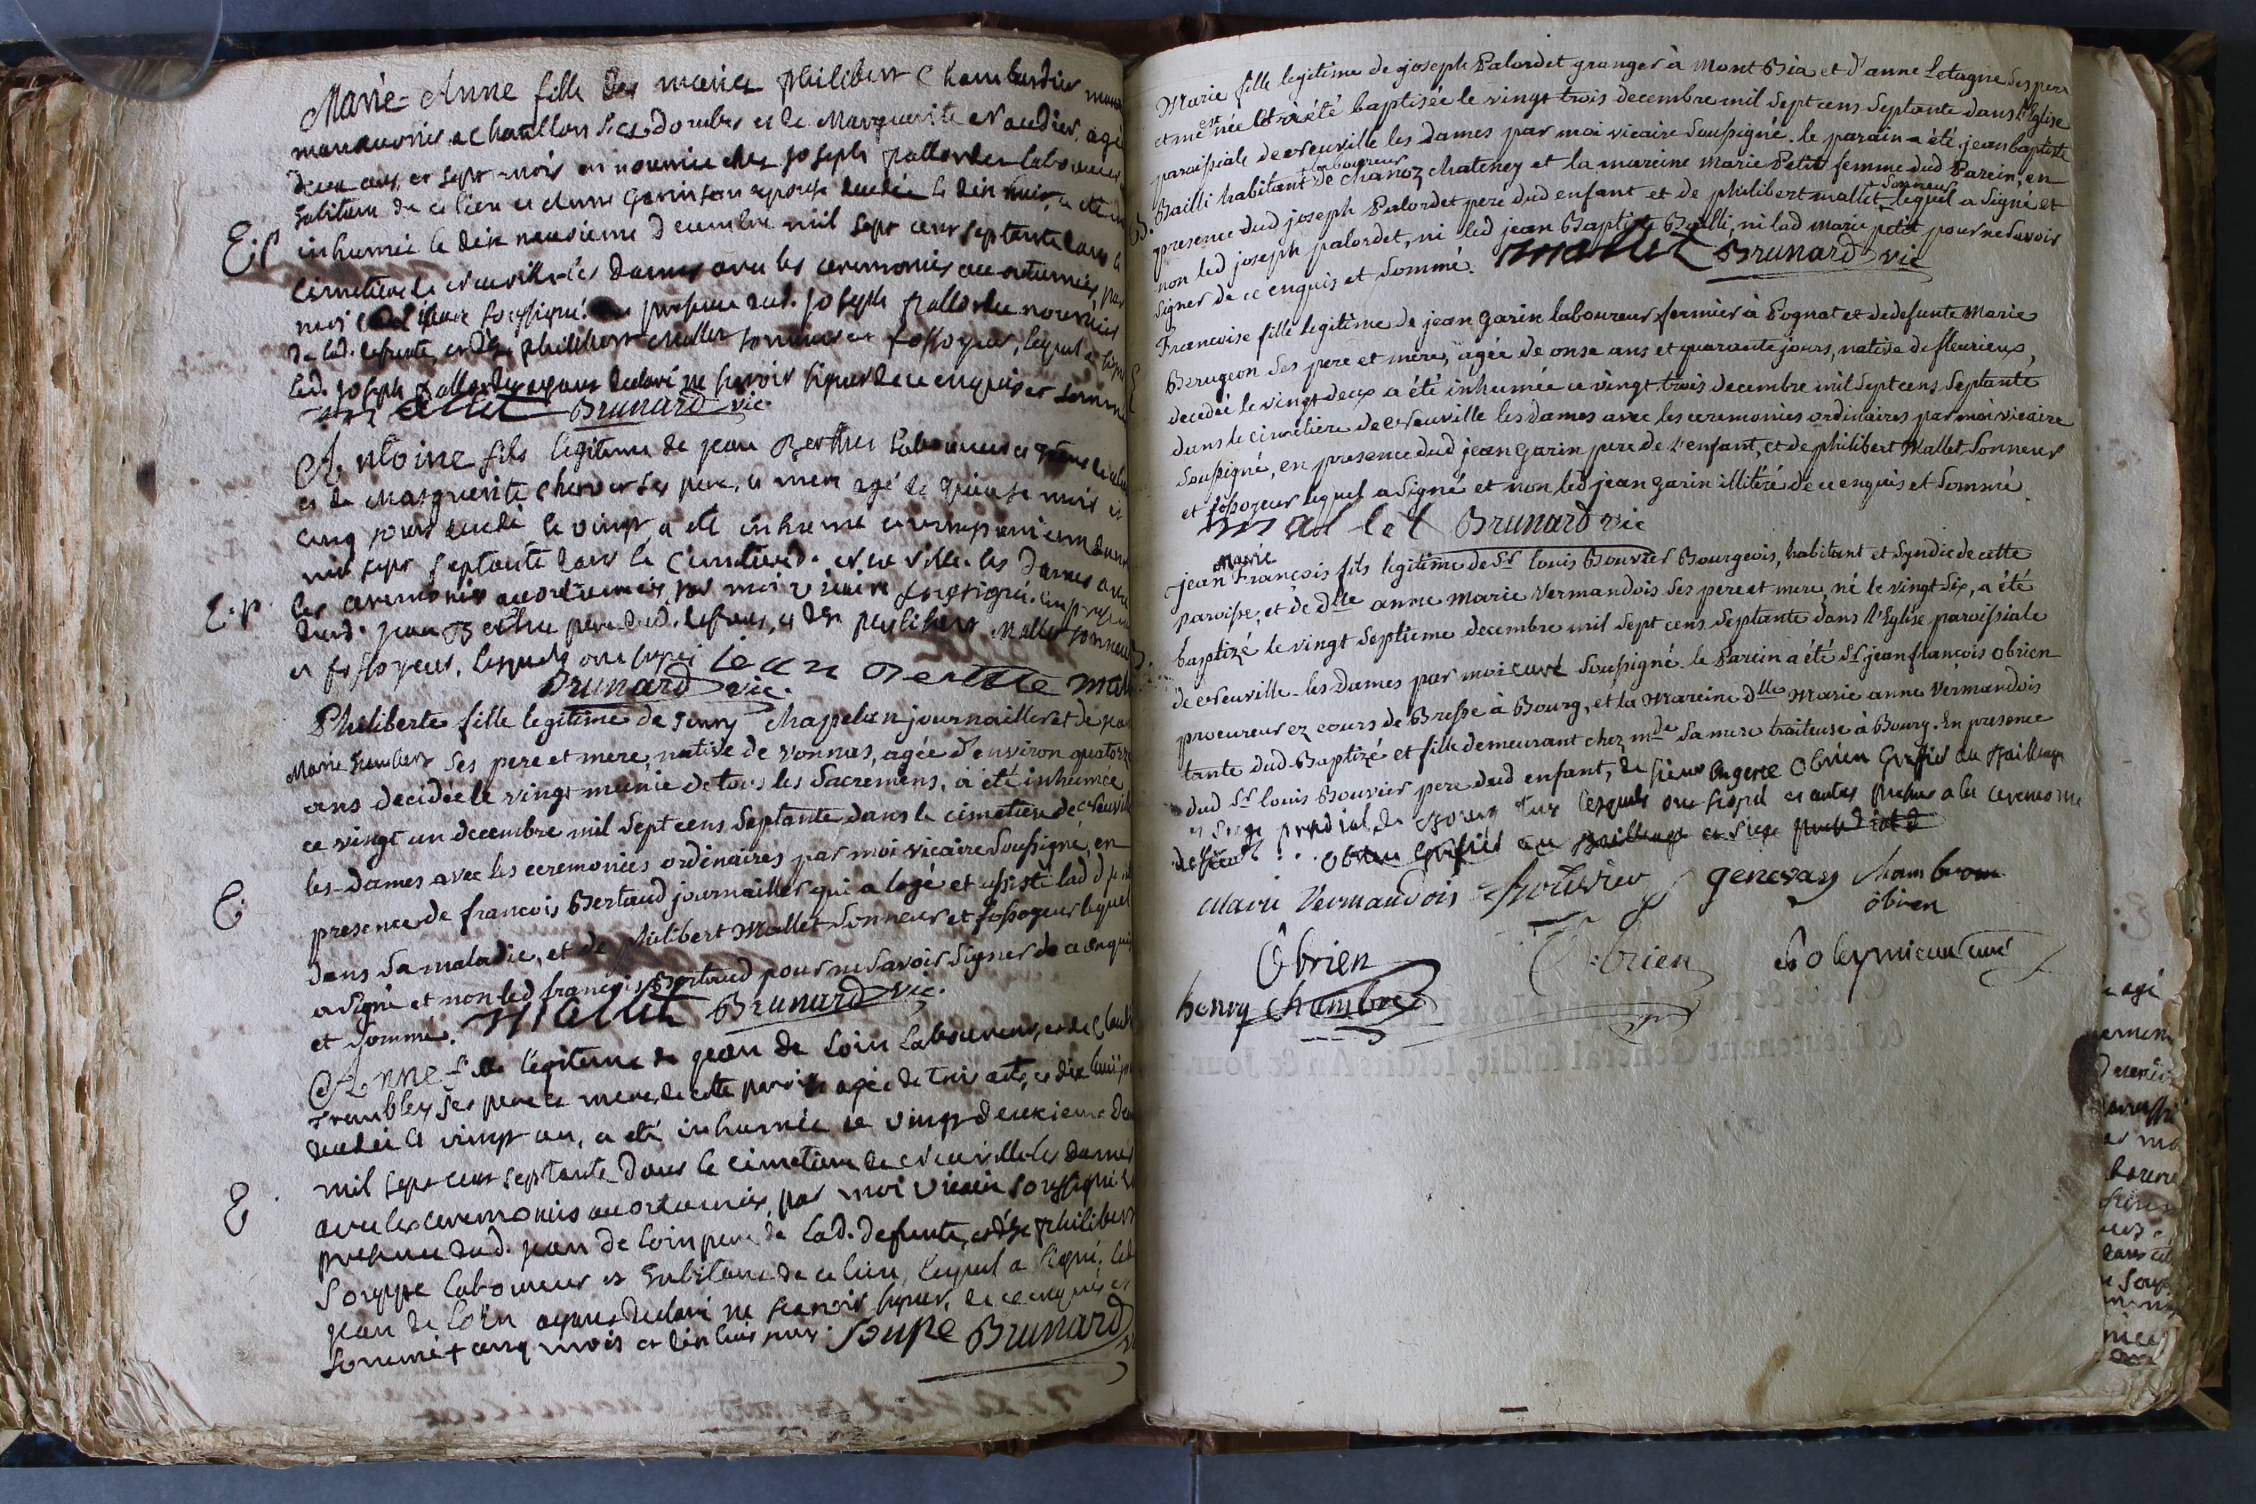 Marie-Anne fille des mariés philibert Chambardier
manœuvrier a Chatillon les dombes et de Marguerite Naudier, agé
deux ans, et sept mois en nourrice chez joseph pallordet laboureur
habitant de ce lieu et Anne Garin son epouse decedée le dix huit, a été
E.p
inhumée le dix neuvieme decembre mil sept cent septante dans le
cimetiere de neuville-les Dames avec les ceremonies accoutumées, par
moi vicaire soussigné. presence dud. joseph pallordet nourricier
de lad. defunte, et de philibert Mallet sonneur et fossoyeur, lequel a signé
led. joseph pallordet ayant declaré ne scavoir signer de ce enquis et sommé
mallet Brunard vic.
Antoine fils legitime de jean Berthet laboureur et
et de Marguerite Chervet ses pere, et mere agé de quinze mois et
cinq jours decedé le vingt, a été inhumé ce vingt
mil sept septante dans le Cimetiere de neuville-les Dames avec
E.p.
les ceremonies accoutumées, par moi vicaire soussigné. en presence
dud. jean Bethe pere dud. defunt, et de philibert Mallet sonneur
et fossoyeur. lesquels ont signé jean Berthe mall
Brunard vic.
Philiberte fille legitime de Chappelan journallier et de
Marie humbert ses pere et mere, native de vonnas, agée d'environ quatorze
ans decedée le vingt munie de tous les sacremens, a été inhumée
ce vingt un decembre mil sept cens septante dans le cimetiere de neuville
les-Dames avec les ceremonies ordinaires par moi vicaire soussigné, en
E.
presence de francois Bertaud journallier qui a logé et assisté lad
dans sa maladie, et de philibert Mallet sonneur et fossoyeur lequel
a signé et non led francois Bertaud pour ne savoir signer de ce enquis
et sommé. Mallet Brunard vic.
Anne fille legitime de jean de Loin laboureur, et de Claudine
Trembley ses pere et mere, de cette paroisse agée de trois ans, et dix huit
decedée le vingt un, a été inhumée ce vingt deuxieme
mil sept cent septante dans le cimetiere de neuville les dames
E.
avec les ceremonies accoutumées, par moi vicaire soussigné
presence dud. jean de Loin pere de lad. defunte, et de philibert
Souppe laboureur et habitant de ce lieu, lequel a signé, led
jean de Loin ayant declaré ne scavoir signer, de ce enquis et
sommé + cinq mois et dix huit jours. Soupe Brunard
Marie fille legitime de joseph Palordet granger à Mont Bia et d'anne Letagne ses pere
et mere est née et a été baptisée le vingt trois decembre mil sept cens septante dans l'Eglise
paroissiale de neuville les Dames par moi vicaire soussigné. le parain a été jean baptiste
laboureur
Bailli habitant de chanoz chateney et la mareine Marie Petit femme dud Parein, en
B.
presence dud joseph Palordet pere dud enfant et de philibert mallet sonneur lequel a signé et
non led joseph palordet, ni led jean Baptiste Bailli, ni lad marie petit pour ne savoir
signer de ce enquis et sommé. Mallet Brunard vic
Francoise fille legitime de jean garin laboureur fermier à Pognat et de defunte Marie
Berugeon ses pere et mere, agée de onse ans et quarante jours, native de fleurieux,
decedée le vingt deux a été inhumée ce vingt trois decembre mil sept cens septante
dans le cimetiere de neuville les dames avec les ceremonies ordinaires par moi vicaire
soussigné, en presence dud jean garin pere de l'enfant, et de philibert Mallet sonneur
et fossoyeur lequel a signé et non led jean garin illiteré de ce enquis et sommé.
mallet Brunard vic
Marie
jean François fils legitime de Sr louis Bouvier Bourgeois, habitant et syndic de cette
paroisse, et de dlle anne marie vermandois ses pere et mere, né le vingt six, a été
baptizé le vingt septieme decembre mil sept cens septante dans l'Eglise paroissiale
de neuville-les Dames par moi curé soussigné. le Parein a été Sr jean francois obrien
procureur ez cours de Bresse à Bourg, et la Mareine dlle Marie anne vermandois
tante dud Baptizé et fille demeurant chez mde sa mere traiteuse à Bourg. En presence
dud Sr louis Bouvier pere dud enfant, de sieur Obrien Greffier au Bailliage
et siege presidial de Bourg tous lesquels ont signé et autres presens a la ceremonie
obrien Greffier au Bailliage et siege presidial d
Marie Vermandois Bouvier genevay Chambrou
obrien
Obrien Obrien Poleymieux curé
henry Chambre